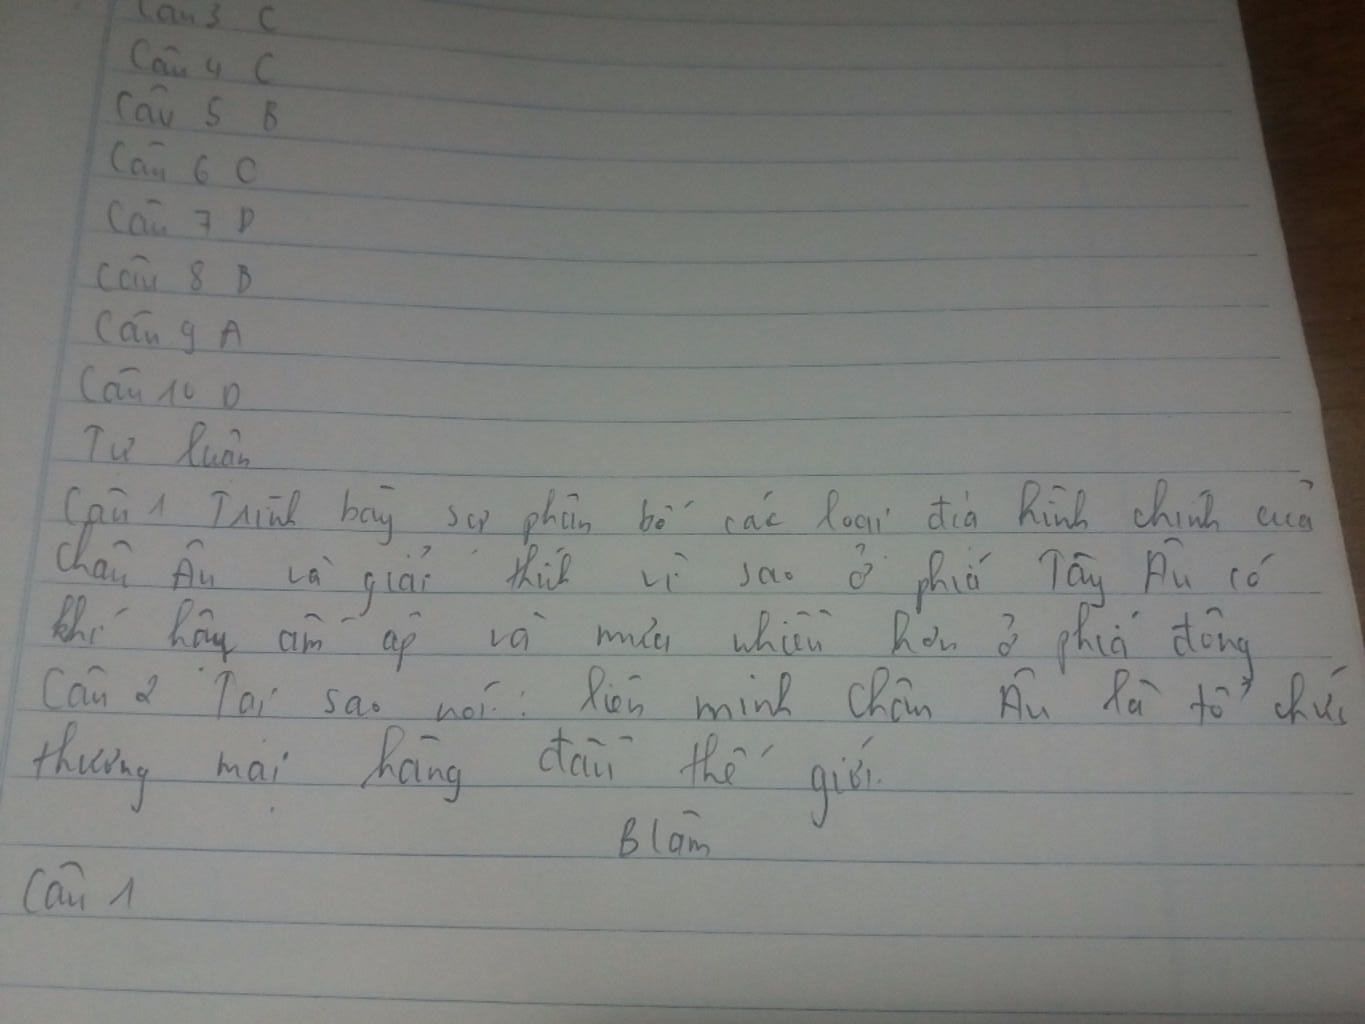 Câu 3 C
Câu 4 C
Câu 5 B
Câu 6 C
Câu 7 D
Câu 8 B
Câu 9 A
Câu 10 D
Tự luận
Câu 1 Trình bày sự phân bố các loại địa hình chính của
châu Âu và giải thích vì sao ở phía Tây Âu có
khí hậu ấm áp và mưa nhiều hơn ở phía đông
Câu 2 Tại sao nói: liên minh châu Âu là tổ chức
thương mại hàng đầu thế giới.
B làm
Câu 1